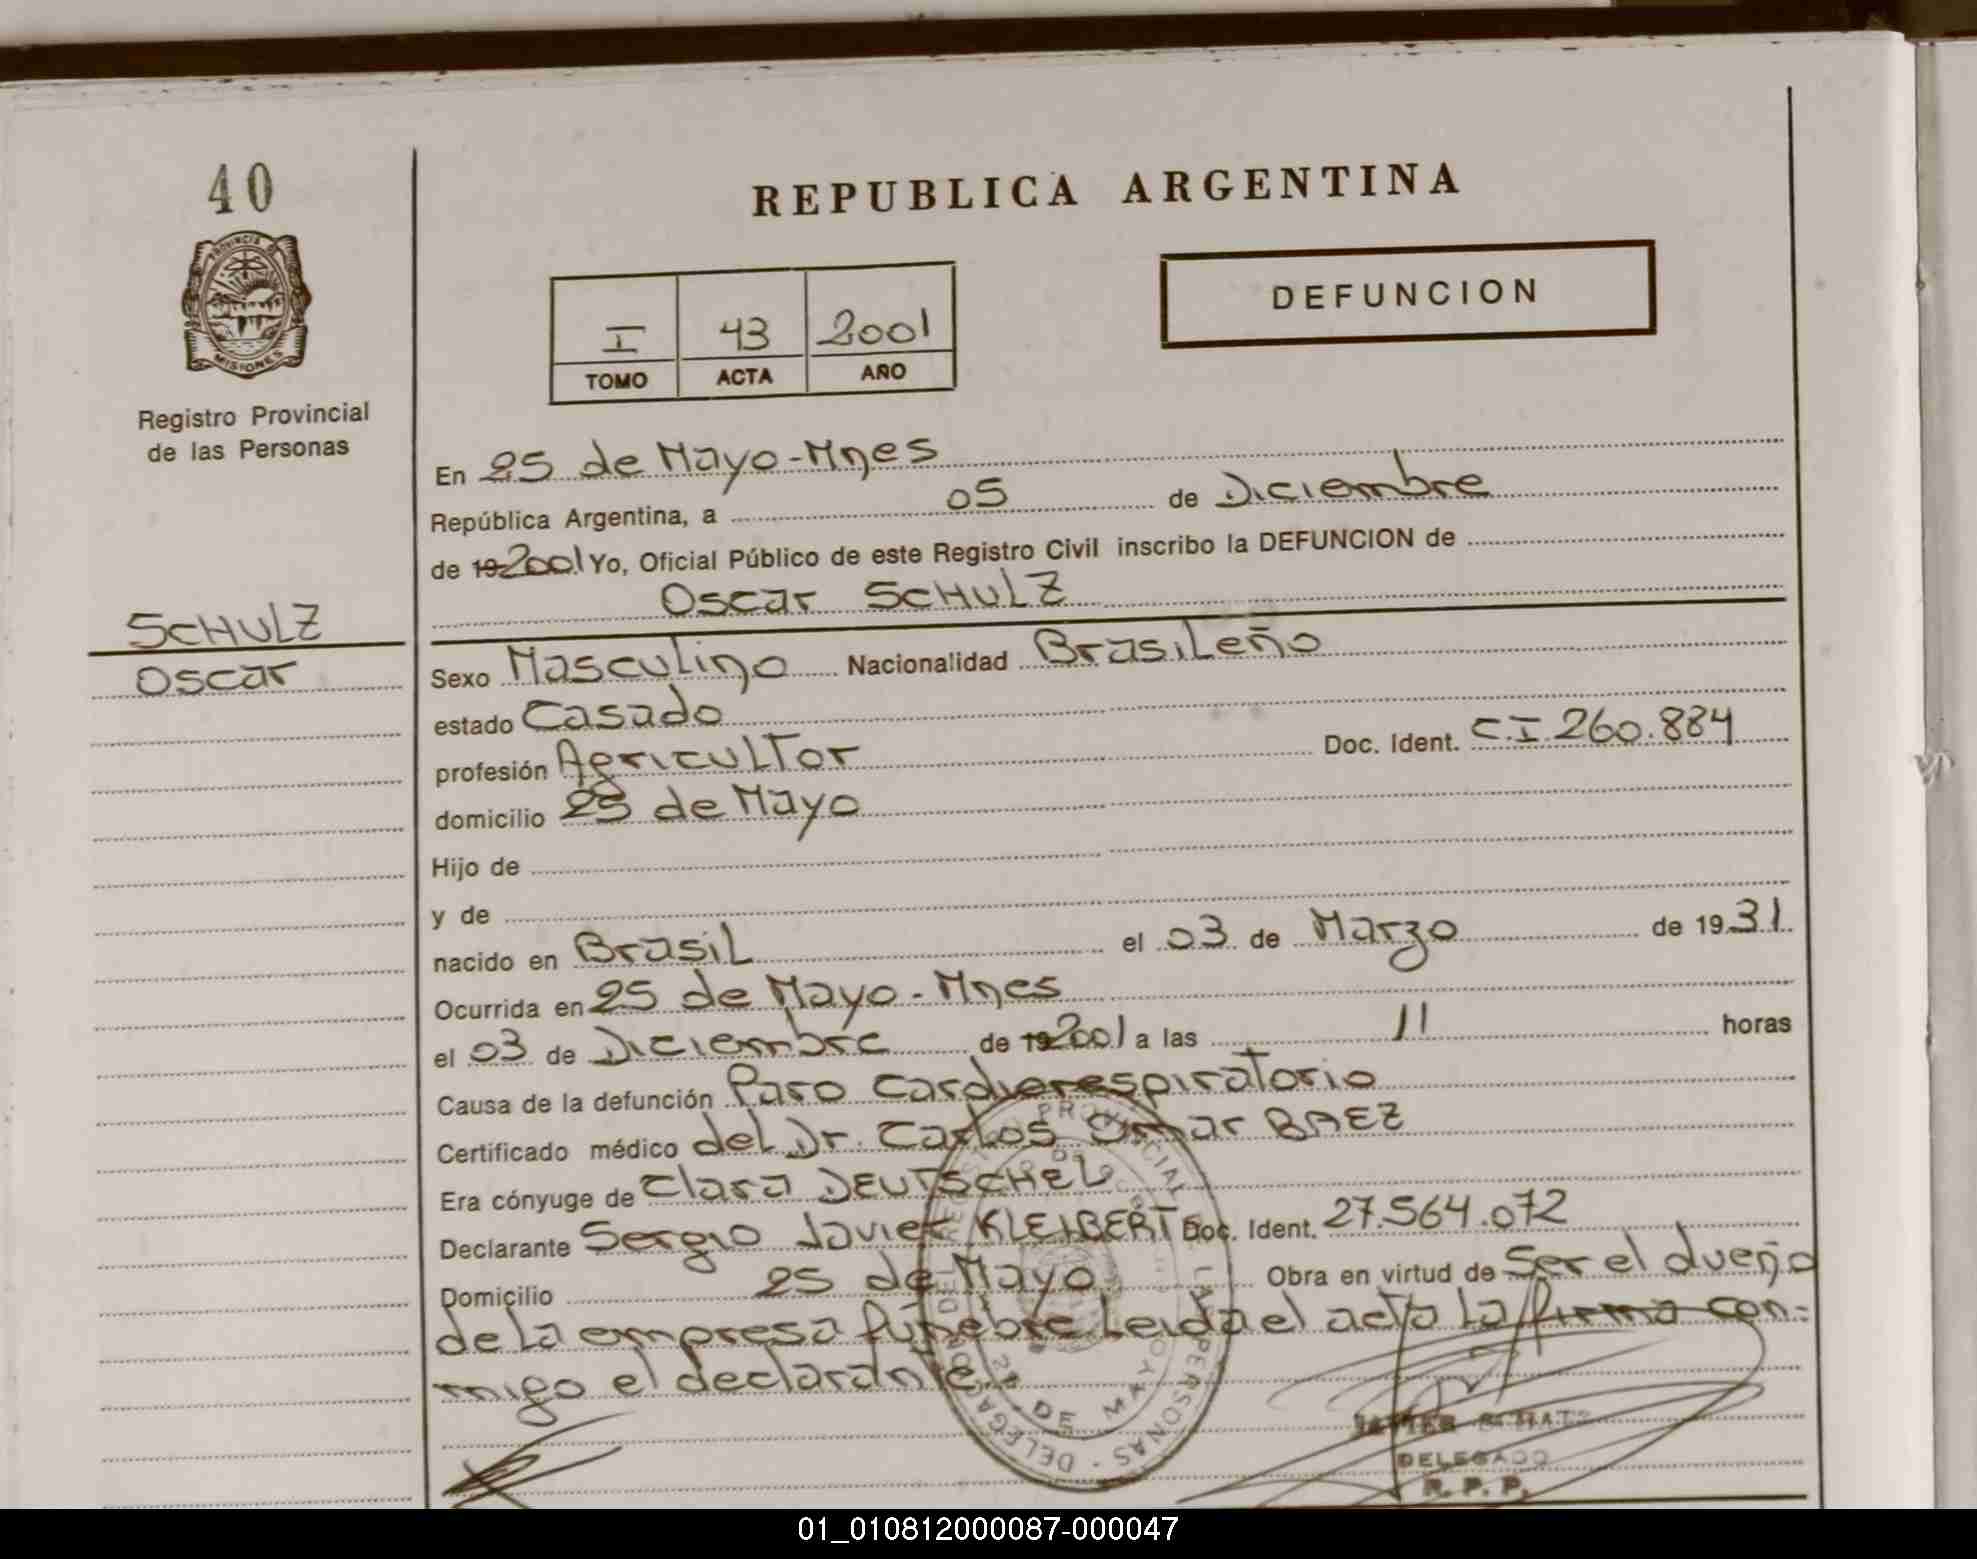 40
PROVINCIA DE
MISIONES
Registro Provincial
de las Personas
SCHULZ
Oscar
REPUBLICA ARGENTINA
DEFUNCION
I 43 2001
TOMO ACTA AÑO
En 25 de Mayo - Mnes
República Argentina, a 05 de Diciembre
de 19 2001 Yo, Oficial Público de este Registro Civil inscribo la DEFUNCION de
Oscar SCHULZ
Sexo Masculino Nacionalidad Brasileño
estado Casado
profesión Agricultor Doc. Ident. C.I. 260.884
domicilio 25 de Mayo
Hijo de
y de
nacido en Brasil el 03 de Marzo de 1931
Ocurrida en 25 de Mayo - Mnes
el 03 de Diciembre de 19 2001 a las 11 horas
Causa de la defunción Paro Cardiorespiratorio
Certificado médico del Dr. Carlos Omar BAEZ
Era cónyuge de Clara DEUTSCHEL
Declarante Sergio Javier KLEIBERT Doc. Ident. 27.564.072
Domicilio 25 de Mayo Obra en virtud de Ser el dueño
de la empresa fúnebre. Leida el acta la firma con=
migo el declarante.
PROVINCIAL DE LAS PERSONAS - DELEGACION
25 DE MAYO
JAVIER
DELEGADO
R. P. P.
01_010812000087-000047